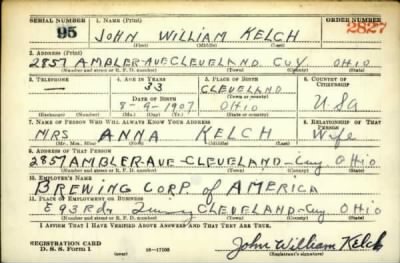 SERIAL NUMBER 1. NAME (Print) ORDER NUMBER
95 JOHN WILLIAM KELCH 2827
(First) (Middle) (Last)
2. ADDRESS (Print)
2857 AMBLER-AVE CLEVELAND CUY OHIO
(Number and street or R. F. D. number) (Town) (County) (State)
3. TELEPHONE 4. AGE IN YEARS 5. PLACE OF BIRTH 6. COUNTRY OF CITIZENSHIP
— 33 CLEVELAND
(Town or county)
DATE OF BIRTH
8-9-1907 OHIO U.S.A
(Exchange) (No.) (Mo.) (Day) (Yr.) (State or country)
7. NAME OF PERSON WHO WILL ALWAYS KNOW YOUR ADDRESS 8. RELATIONSHIP OF THAT PERSON
MRS ANNA KELCH Wife
(Mr., Mrs., Miss) (First) (Middle) (Last)
9. ADDRESS OF THAT PERSON
2857 AMBLER-AVE-CLEVELAND-Cuy OHIO
(Number and street or R. F. D. number) (Town) (County) (State)
10. EMPLOYER'S NAME
BREWING CORP. of AMERICA
11. PLACE OF EMPLOYMENT OR BUSINESS
E 93 Rd & Quincy CLEVELAND-Cuy OHIO
(Number and street or R. F. D. number) (Town) (County) (State)
I AFFIRM THAT I HAVE VERIFIED ABOVE ANSWERS AND THAT THEY ARE TRUE.
REGISTRATION CARD
D. S. S. Form 1 16-17105 John William Kelch
(Registrant's signature)